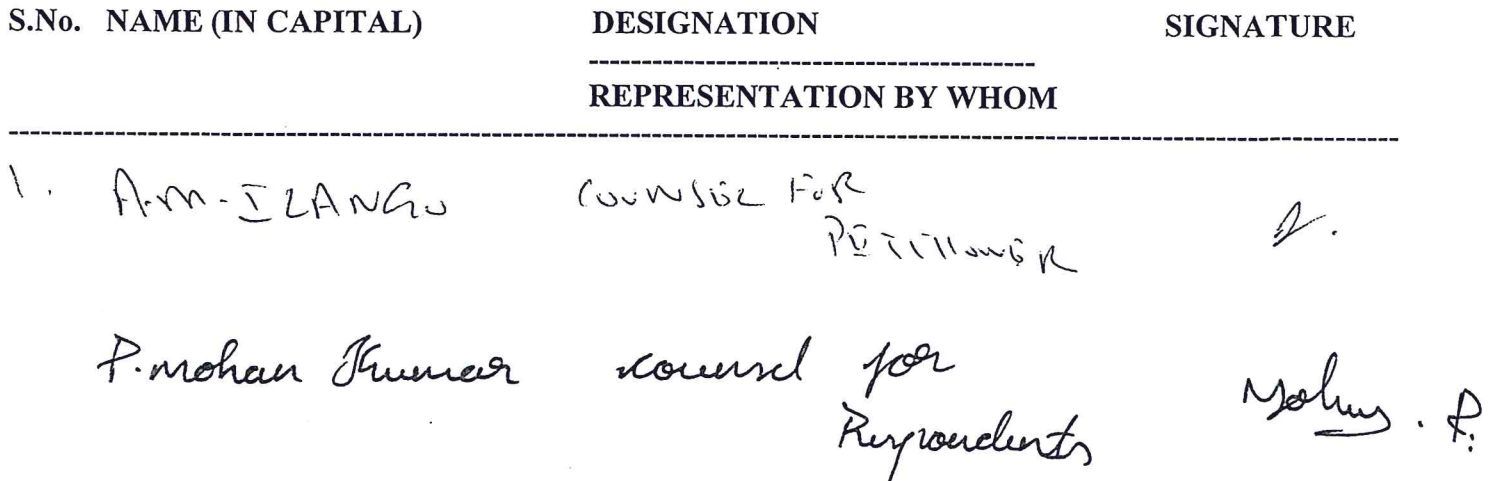 S.No. NAME (IN CAPITAL) DESIGNATION SIGNATURE
----------------------------------------
REPRESENTATION BY WHOM
1. A.M.ILANGO COUNSEL FOR
PETITIONER
P.mohan Kumar counsel for
Respondents